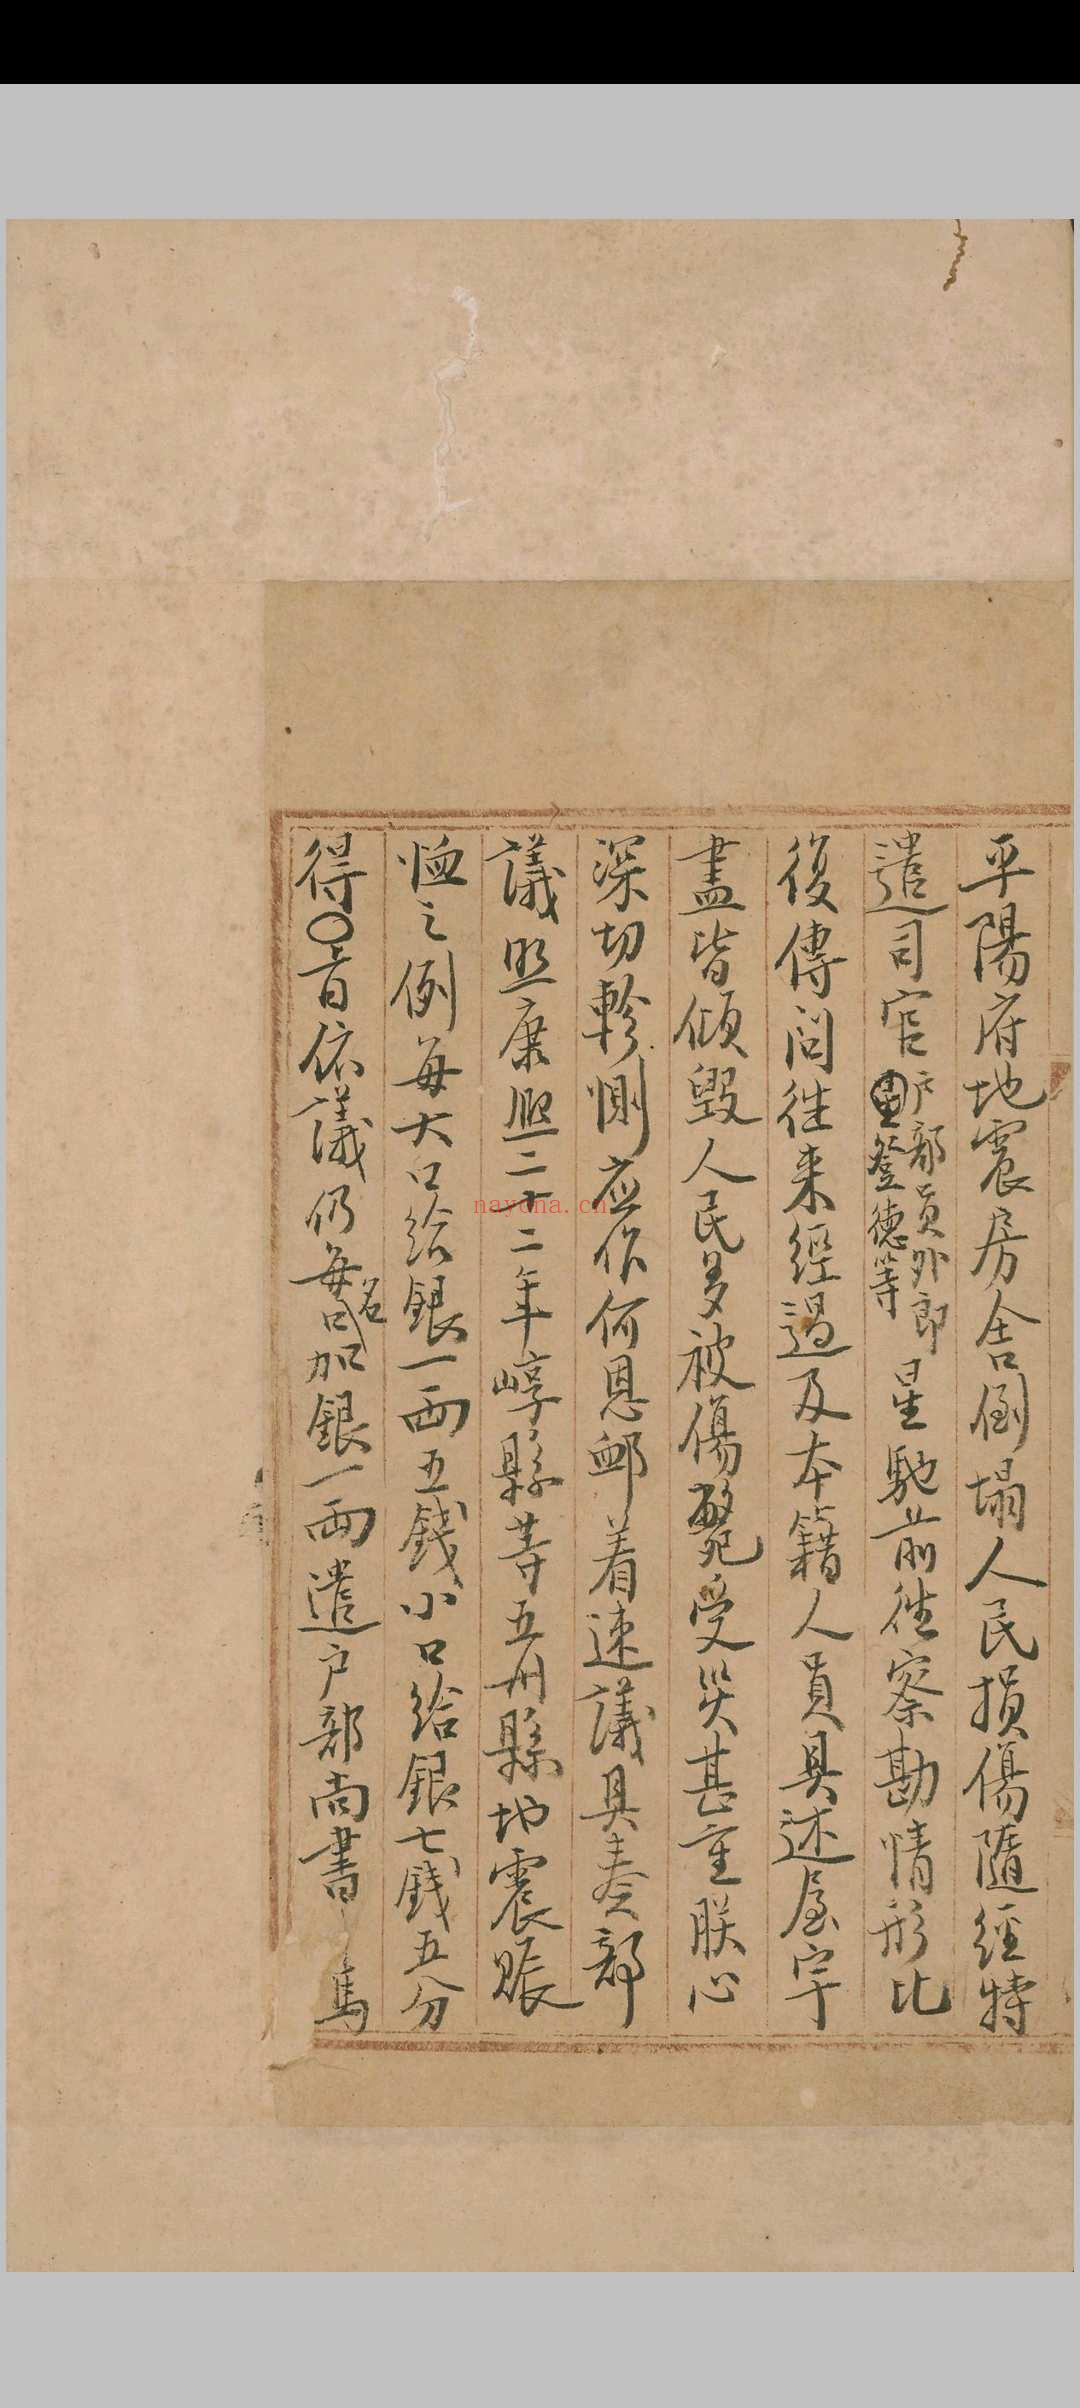 平陽府地震房舍倒塌人民損傷隨經特
遣司官戶部員外郎
登德等
星馳前往察勘情形比
復傳問往来經過及本籍人員具述屋宇
盡皆傾毀人民多被傷斃受災甚重朕心
深切軫惻应作何恩卹着速議具奏部
議照康熙二十二年崞縣等五州縣地震賑
恤之例每大口給銀一兩五錢小口給銀七錢五分
得○旨依議仍每名口加銀一兩遣户部尚書馬
nayona.cn